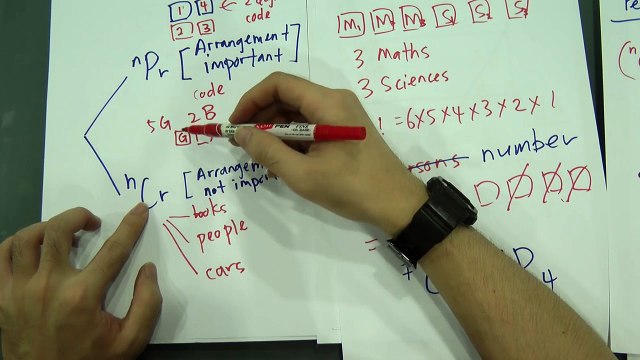 1 4 ← 2
code
2 3
nPr [Arrangement
important]
code
5G 2B
G
nCr [Arrang
not import
books
people
cars
M1 M2 M3 S1 S2 S3
3 Maths
3 Sciences
! = 6×5×4×3×2×1
number
=
+
P4